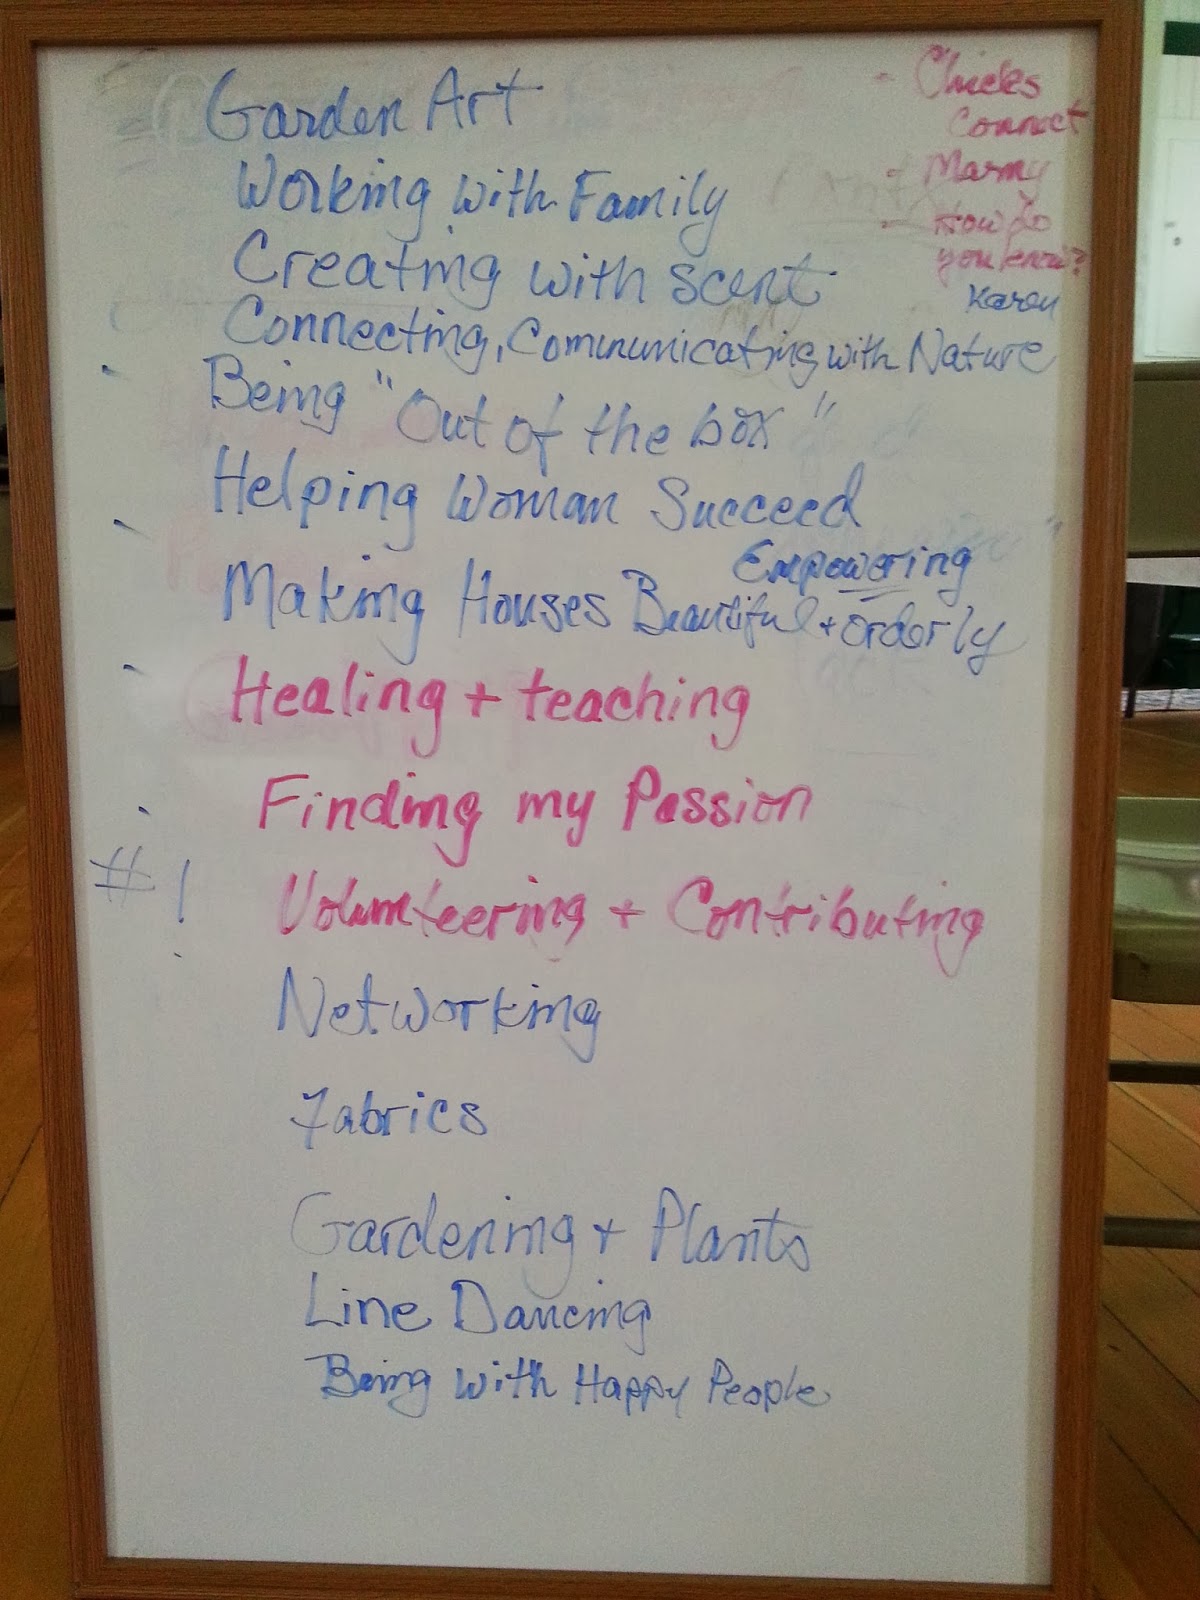 Garden Art
Working with Family
Creating with Scent
Connecting, Communicating with Nature
Being "Out of the box"
Helping Woman Succeed
Empowering
Making Houses Beautiful + orderly
Healing + teaching
Finding my Passion
#!
Volunteering + Contributing
Networking
Fabrics
Gardening + Plants
Line Dancing
Being with Happy People
- Chicks
Connect
- Marny
- How do
you know?
Karen